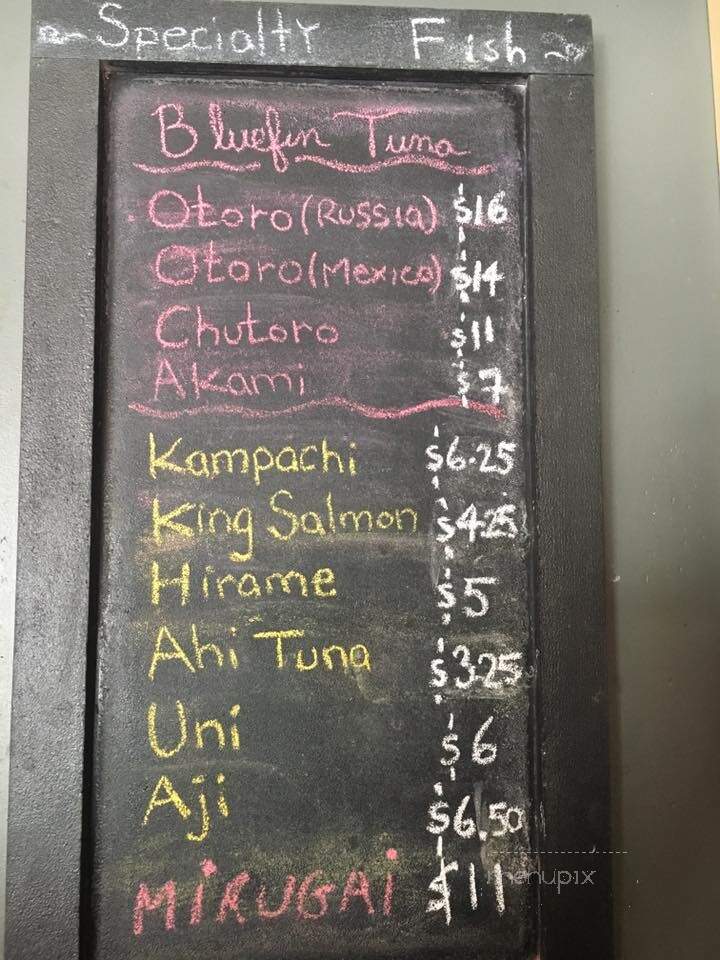 Specialty Fish
Bluefin Tuna
Otoro (Russia) $16
Otoro (Mexico) $14
Chutoro $11
Akami $7
Kampachi $6.25
King Salmon $4.25
Hirame $5
Ahi Tuna $3.25
Uni $6
Aji $6.50
MiRUGAi $11
menupix